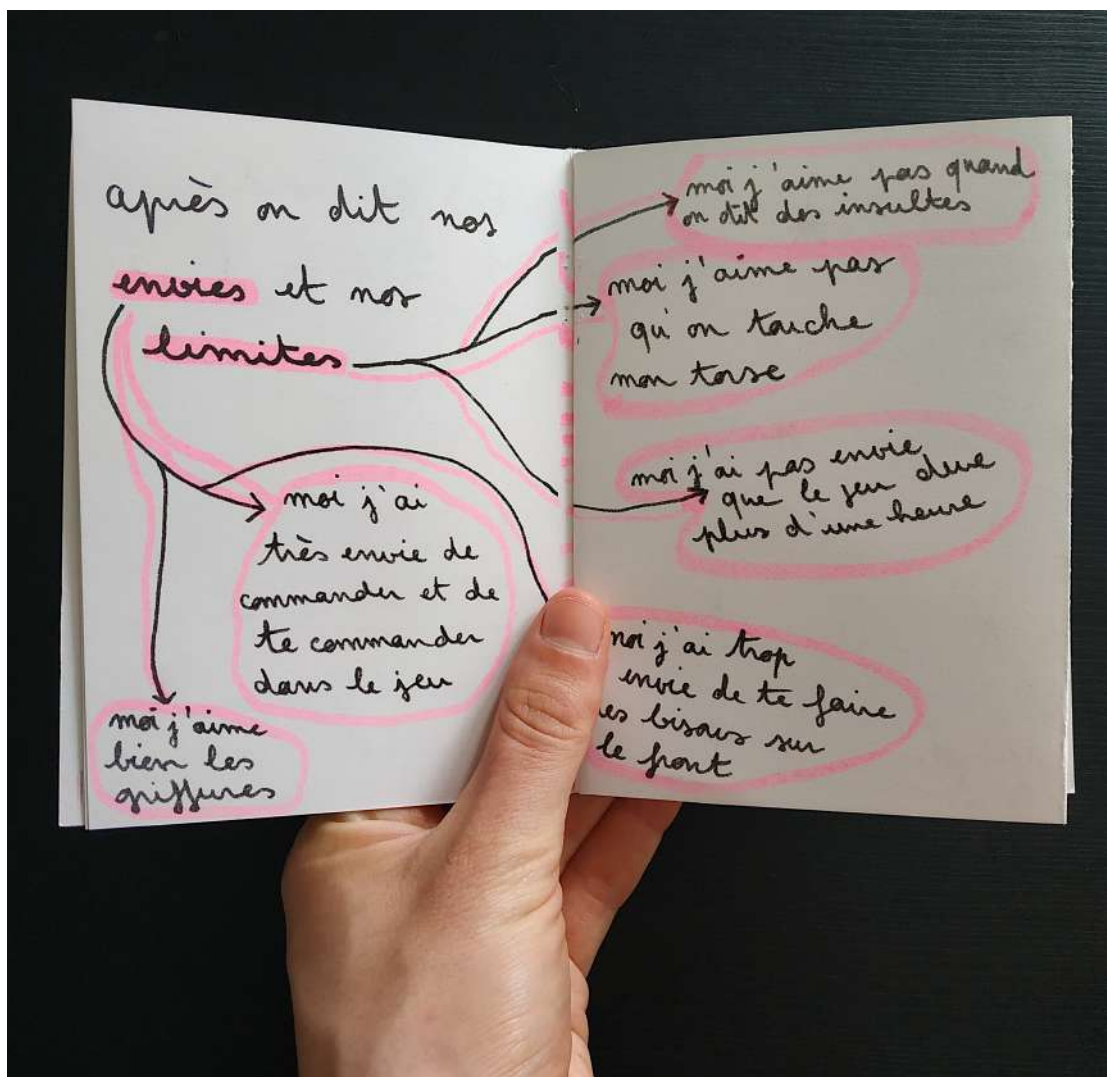 après on dit nos
envies et nos
limites
moi j'ai
très envie de
commander et de
te commander
dans le jeu
moi j'aime
bien les
griffures
moi j'aime pas quand
on dit des insultes
moi j'aime pas
qu'on touche
mon torse
moi j'ai pas envie
que le jeu dure
plus d'une heure
moi j'ai trop
envie de te faire
es bisous sur
le front